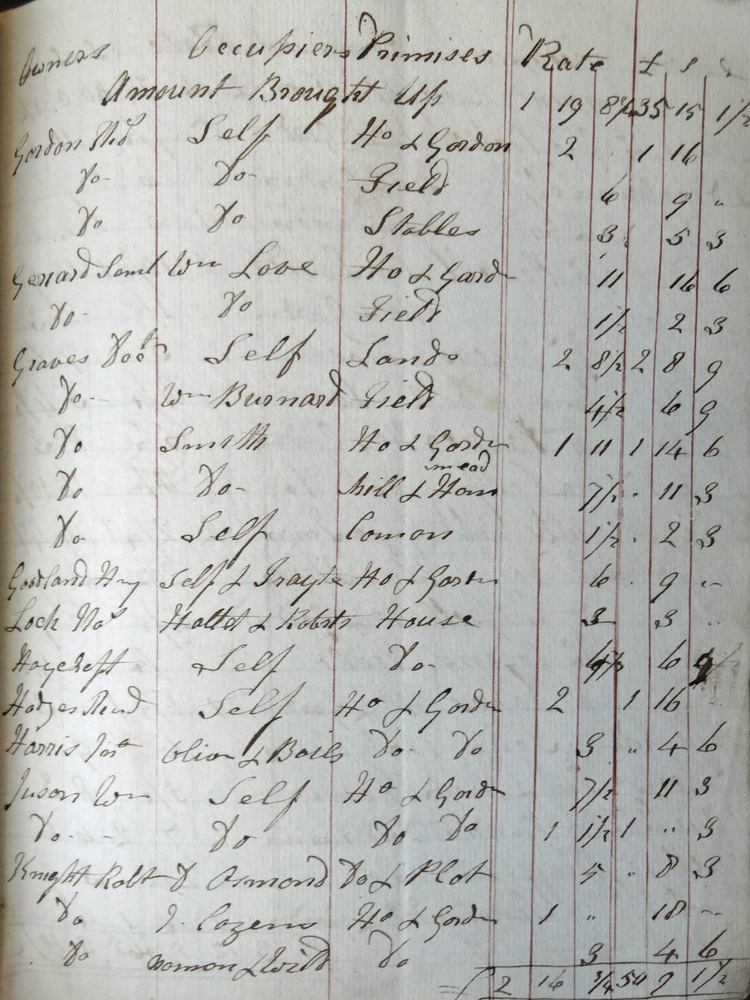 Owners Occupiers Primises Rate £ s
Amount Brought Up 1 19 8 3/4 35 15 1 1/2
Gordon Self Ho & Gordon 2 1 16
Do Do Field 6 9 "
Do Do Stables 3 5 3
Gerrard Saml Wm Love Ho & Gard 11 16 6
Do Do Field 1 1/2 2 3
Graves Self Land 2 8 1/2 2 8 9
Do Wm Burnard Field 4 1/2 6 9
Do Smith Ho & Gorden 1 11 1 14 6
mead
Do Do Mill & Ham 7 1/2 . 11 3
Do Self Comon 1 1/2 . 2 3
Goodland Hny Self & Ho & Gorden 6 . 9 "
Lock House 3 3
Self Do 4 1/2 6 9
Hodges Self Ho & Gorden 2 1 16
Harris & Do Do 3 " 4 6
Juson Wm Self Ho & Gord 7 1/2 11 3
Do Do Do Do 1 1 1/2 1 " 3
Knight Robt Osmond Do & Plot 5 . 8 3
Do J Cozens Ho & Gorden 1 " 18 "
Do & Wild Do 3 4 6
2 16 3/4 50 9 1 1/2